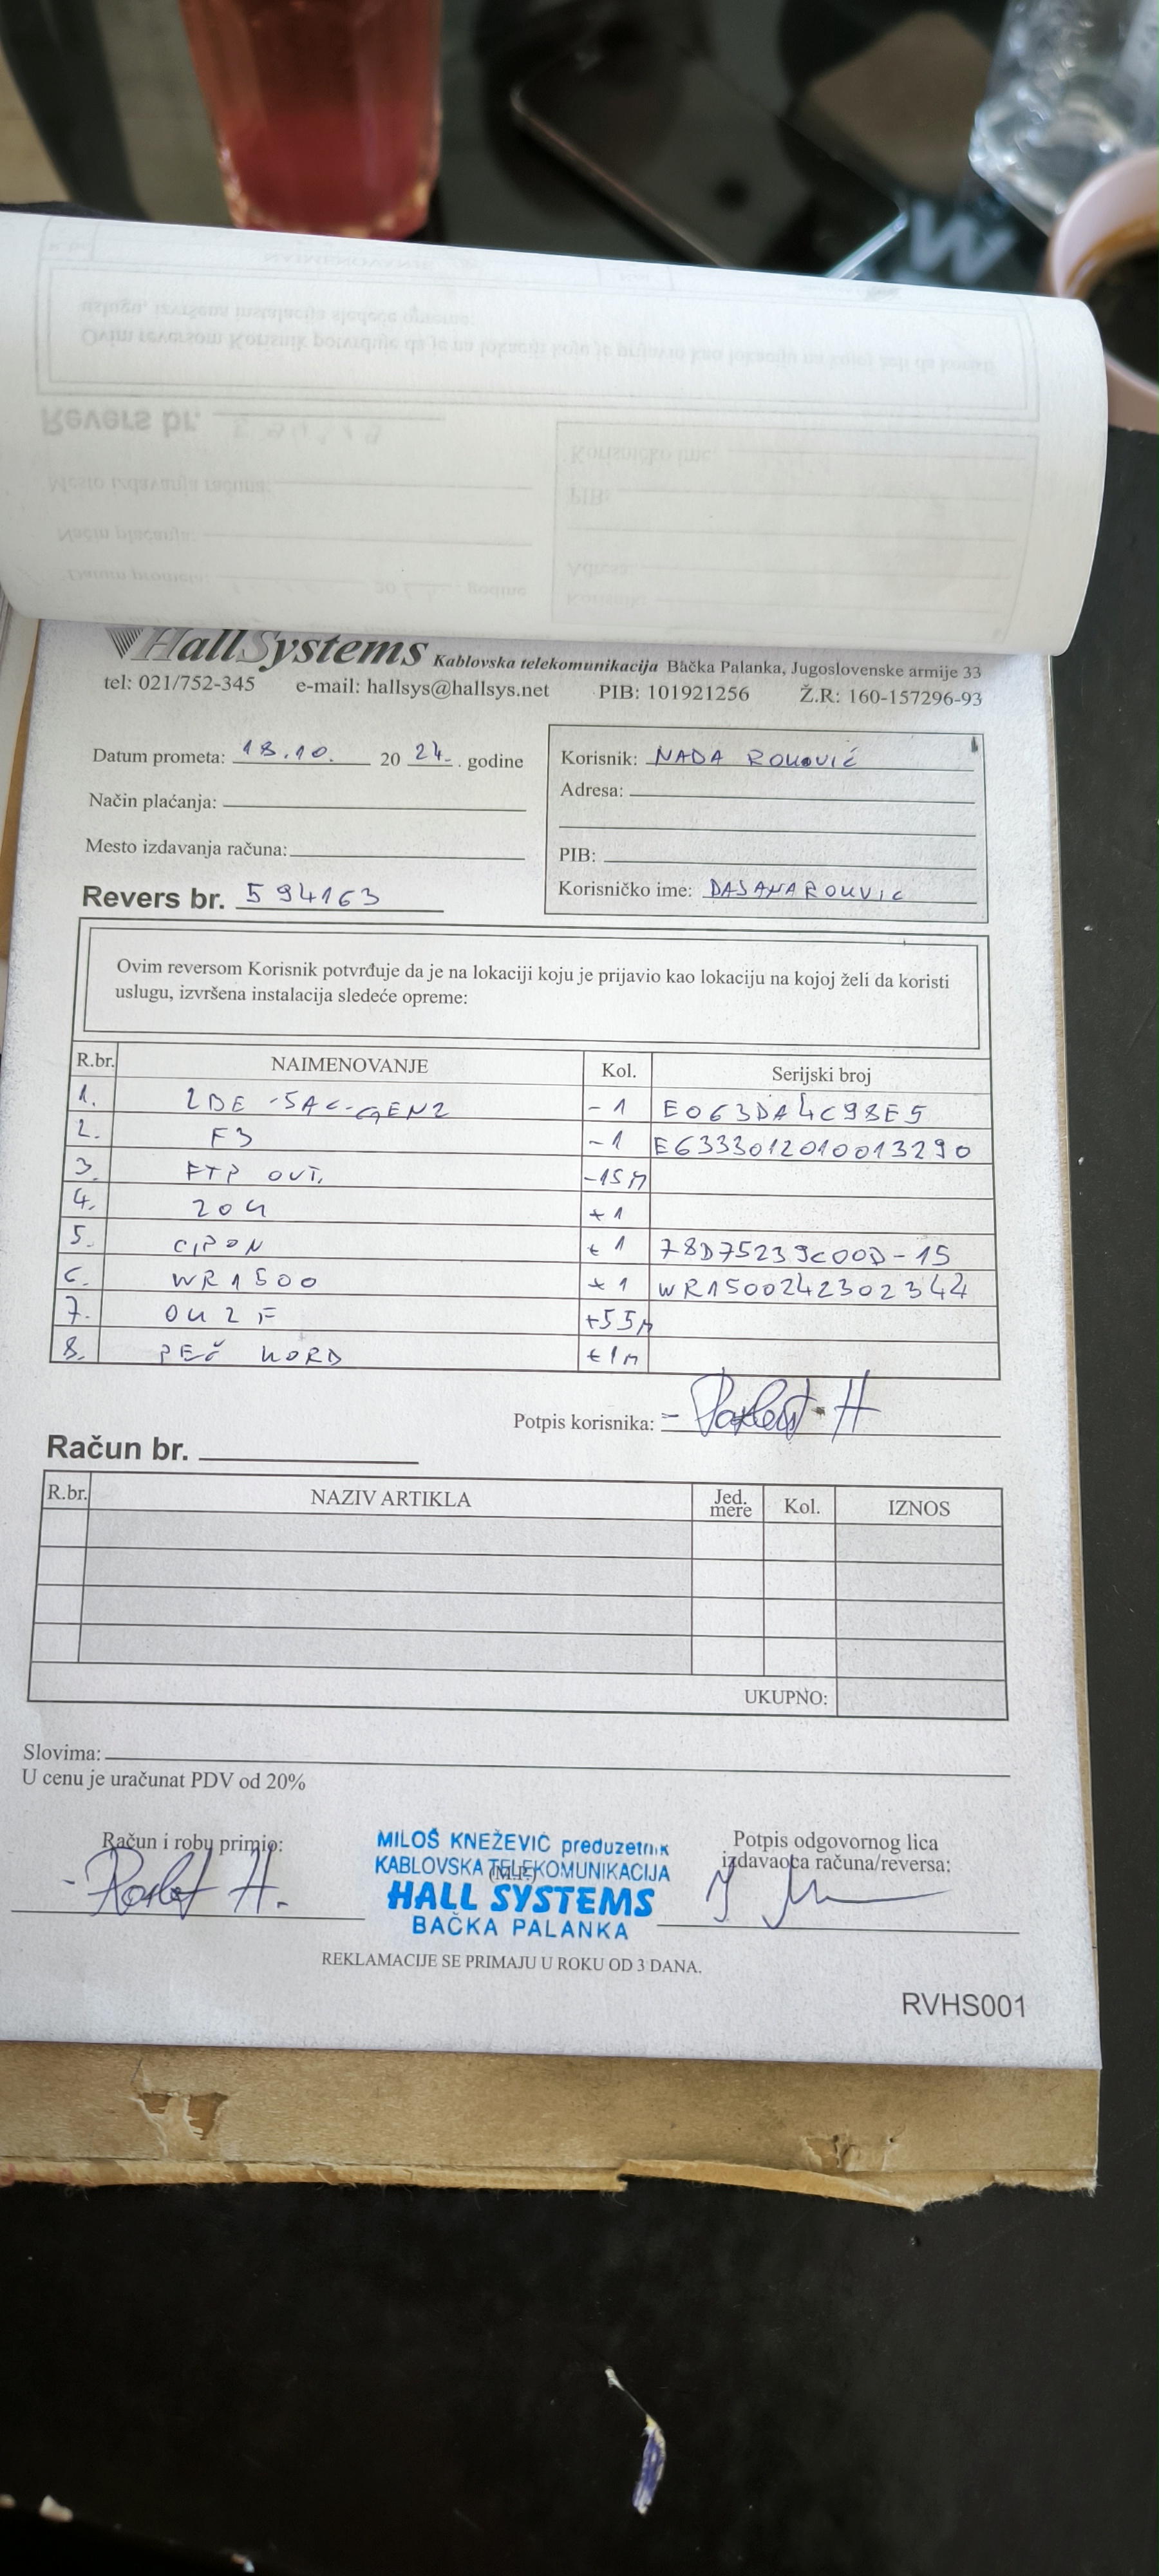 HallSystems Kablovska telekomunikacija Bačka Palanka, Jugoslovenske armije 33
tel: 021/752-345 e-mail: hallsys@hallsys.net PIB: 101921256 Ž.R: 160-157296-93
Datum prometa: 18.10. 20 24. . godine
Način plaćanja:
Mesto izdavanja računa:
Revers br. 594163
Korisnik: NADA ROKOVIĆ
Adresa:
PIB:
Korisničko ime:
Ovim reversom Korisnik potvrđuje da je na lokaciji koju je prijavio kao lokaciju na kojoj želi da koristi
uslugu, izvršena instalacija sledeće opreme:
R.br. NAIMENOVANJE Kol. Serijski broj
1. LBE-5AC-GEN2 -1 E063DA4C98E5
2. F3 -1 E6333012010013290
3. FTP OUT. -15M
4. 204 +1
5. GPON +1 78D75239C00D-15
6. WR1500 +1 WR1500242302344
7. OK2F +55M
8. PEČ KORD +1M
Potpis korisnika:
Račun br.
R.br. NAZIV ARTIKLA Jed. mere Kol. IZNOS
UKUPNO:
Slovima:
U cenu je uračunat PDV od 20%
Račun i robu primio:
MILOŠ KNEŽEVIĆ preduzetnik
KABLOVSKA TELEKOMUNIKACIJA
(M.P.)
HALL SYSTEMS
BAČKA PALANKA
Potpis odgovornog lica
izdavaoca računa/reversa:
REKLAMACIJE SE PRIMAJU U ROKU OD 3 DANA.
RVHS001